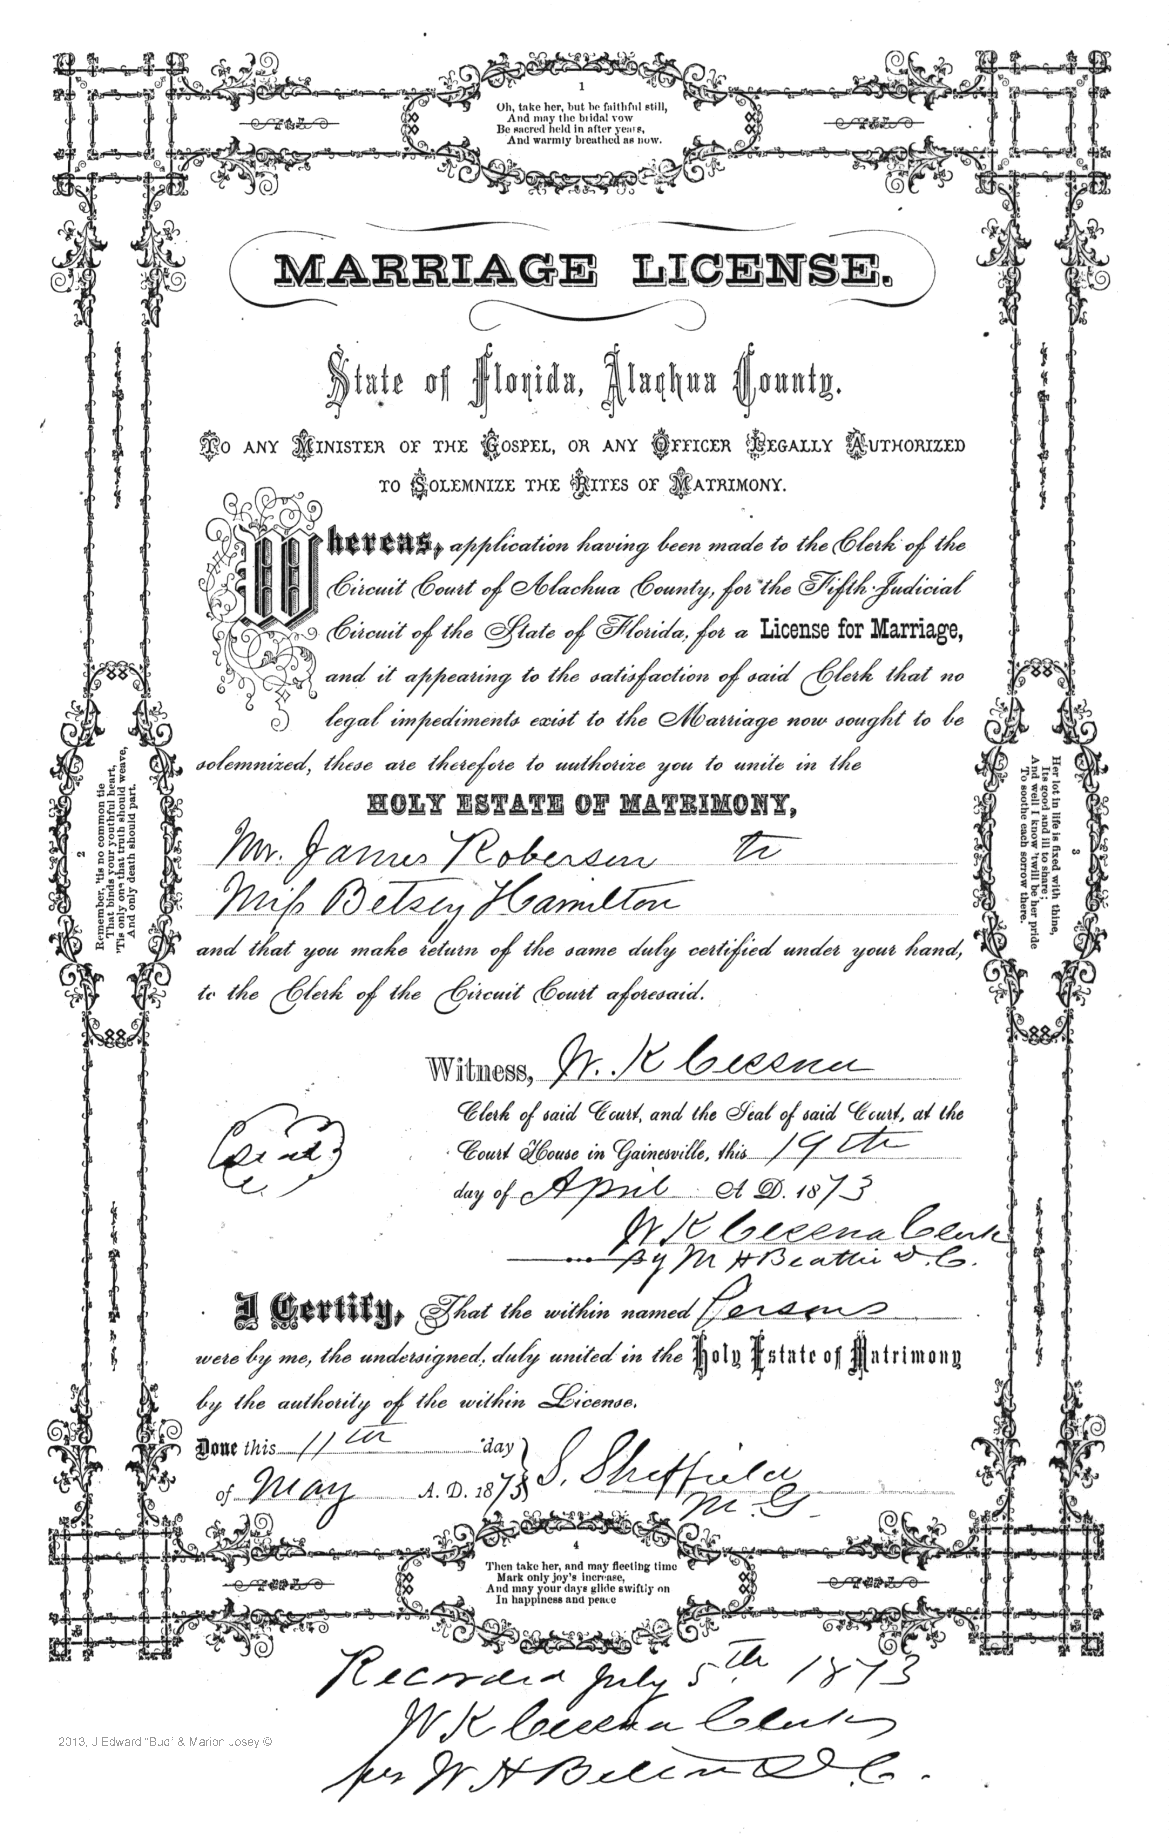 1
Oh, take her, but be faithful still,
And may the bridal vow
Be sacred held in after years,
And warmly breathed as now.
MARRIAGE LICENSE.
State of Florida, Alachua County.
To any Minister of the Gospel, or any Officer Legally Authorized
to Solemnize the Rites of Matrimony.
Whereas, application having been made to the Clerk of the
Circuit Court of Alachua County, for the Fifth Judicial
Circuit of the State of Florida, for a License for Marriage,
and it appearing to the satisfaction of said Clerk that no
legal impediments exist to the Marriage now sought to be
solemnized, these are therefore to authorize you to unite in the
HOLY ESTATE OF MATRIMONY,
Mr. James Roberson to
Miss Betsey Hamilton
and that you make return of the same duly certified under your hand,
to the Clerk of the Circuit Court aforesaid.
Witness, W. K Cessna
Clerk of said Court, and the Seal of said Court, at the
Court House in Gainesville, this 19th
day of April A D. 1873
W K Cessna Clerk
By M H Beattie D.C.
I Certify, That the within named Persons
were by me, the undersigned, duly united in the Holy Estate of Matrimony
by the authority of the within License.
Done this 11th day
of May A. D. 1873
S. Sheffield
M. G.
2
Remember, 'tis no common tie
That binds your youthful heart,
'Tis only one that truth should weave,
And only death should part.
3
Her lot in life is fixed with thine,
Its good and ill to share;
And well I know 'twill be her pride
To soothe each sorrow there.
4
Then take her, and may fleeting time
Mark only joy's increase,
And may your days glide swiftly on
In happiness and peace
Recorded July 5th 1873
W K Cessna Clerk
per W H D.C.
2013, J Edward "Bud" & Marion Josey ©